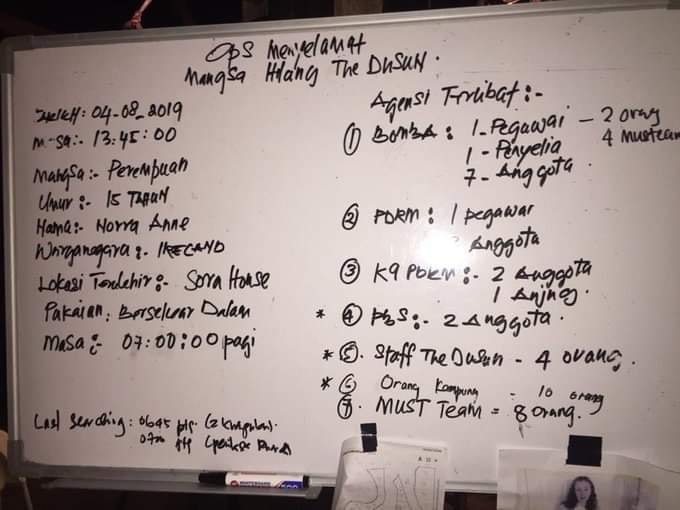 Ops Menyelamat
Mangsa Hilang The Dusun.
04-08-2019
13:45:00
Mangsa:- Perempuan
Umur:- 15 Tahun
Nama:- Norra Anne
Warganegara:- IRELAND
Lokasi Terakhir:- Sora House
Pakaian: Berseluar Dalam
Masa:- 07:00:00 pagi
Last Searching: 0645 ptg (2 kumpulan).
Agensi Terlibat:-
① BombA: 1-Pegawai - 2 orang
4 Musteam
1-Penyelia
7-Anggota.
② PDRM: 1 pegawai
Anggota
③ K9 PDRM:- 2 Anggota
1 Anjing.
* ④ PBS:- 2 Anggota.
* ⑤. Staff The Dusun - 4 orang.
* ⑥ Orang Kampung - 10 orang
⑦. MUST Team = 8 orang.
WHITEBOARD